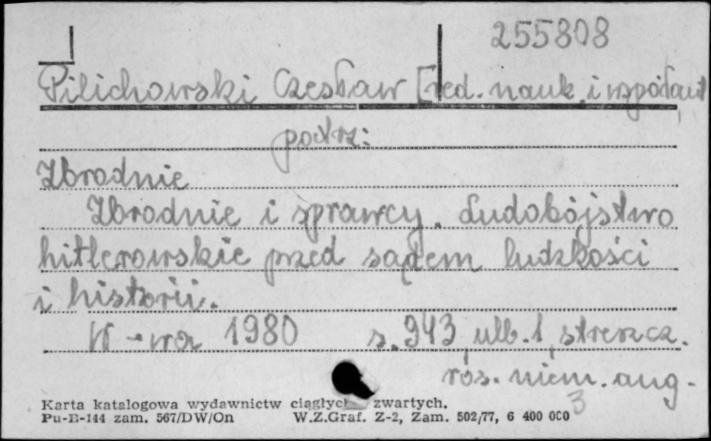 255808
Pilichowski Czesław [red. nauk. i współaut
patrz:
Zbrodnie
Zbrodnie i sprawcy. Ludobójstwo
hitlerowskie przed sądem ludzkości
i historii.
W-wa 1980 s. 943, ulb. 1, streszcz.
ros. niem. ang.
3
Karta katalogowa wydawnictw ciągłych zwartych.
Pu-B-144 zam. 567/DW/On W.Z.Graf. Z-2, Zam. 502/77, 6 400 000